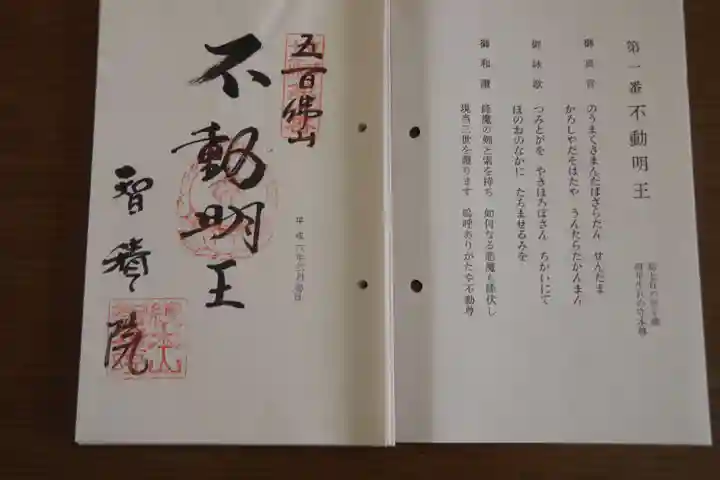 第一番 不動明王
御真言
のうまくさまんだばざらだん せんだま
かろしやだそはたや うんたらたかんまん
御詠歌
つみとがを やきほろぼさん ちかいにて
ほのおのなかに たちませるみを
御和讃
降魔の剣と索を持ち 如何なる悪魔も降伏し
現当二世を護ります 嗚呼ありがたや不動尊
五百佛山
不動明王
智積院
平成 年 月 日